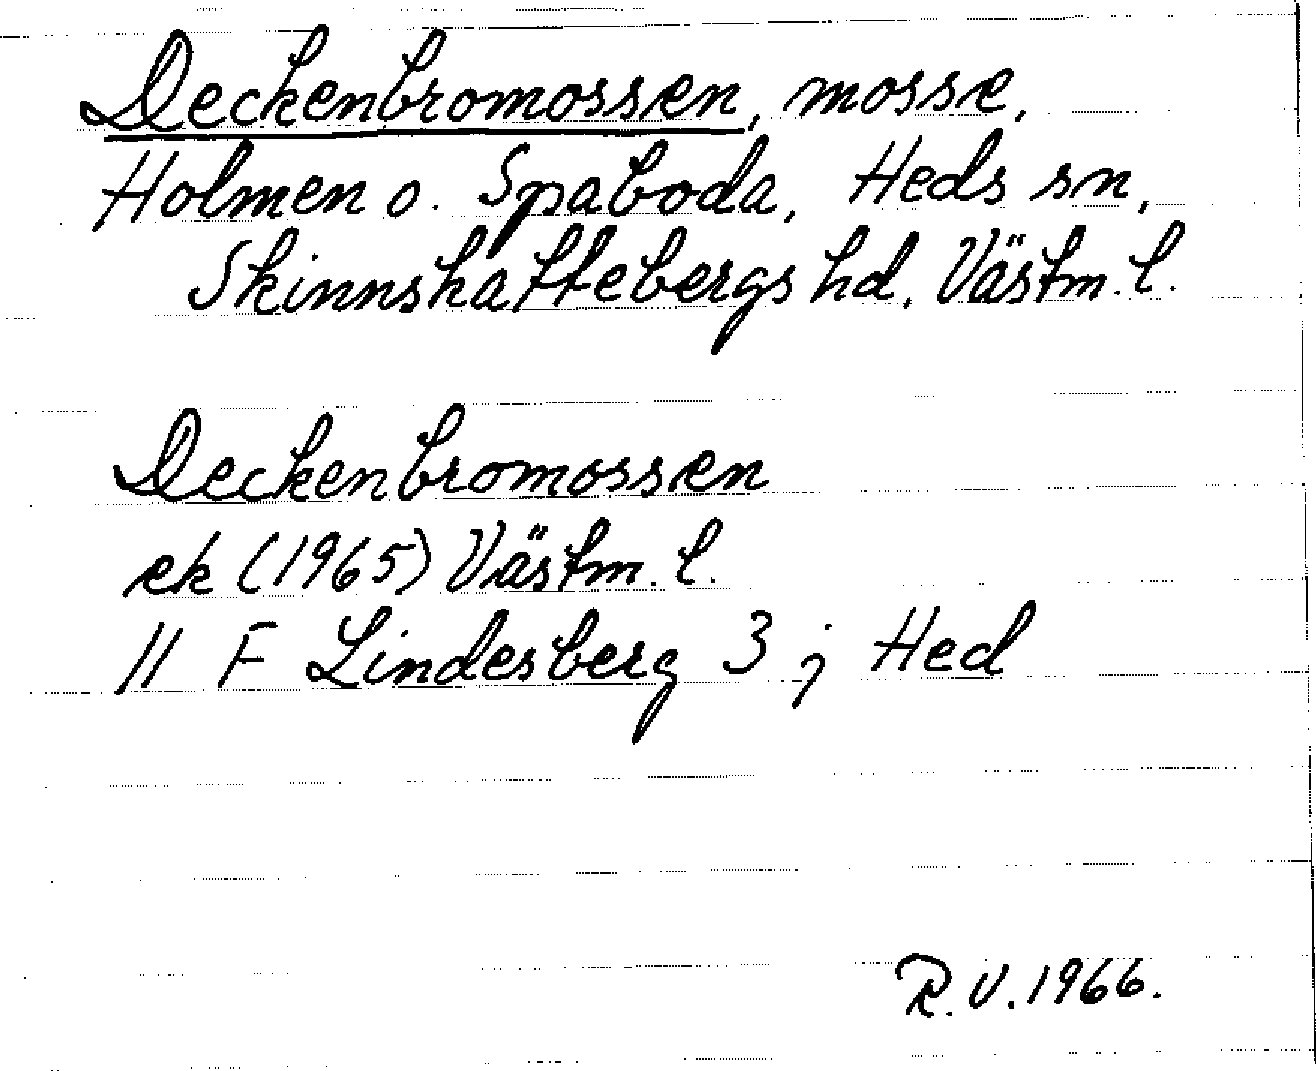 Deckenbromossen, mosse,
Holmen o. Spaboda, Heds sn,
Skinnskattebergs hd, Västm. l.
Deckenbromossen
ek (1965) Västm. l.
11 F Lindesberg 3 j Hed
R.V. 1966.